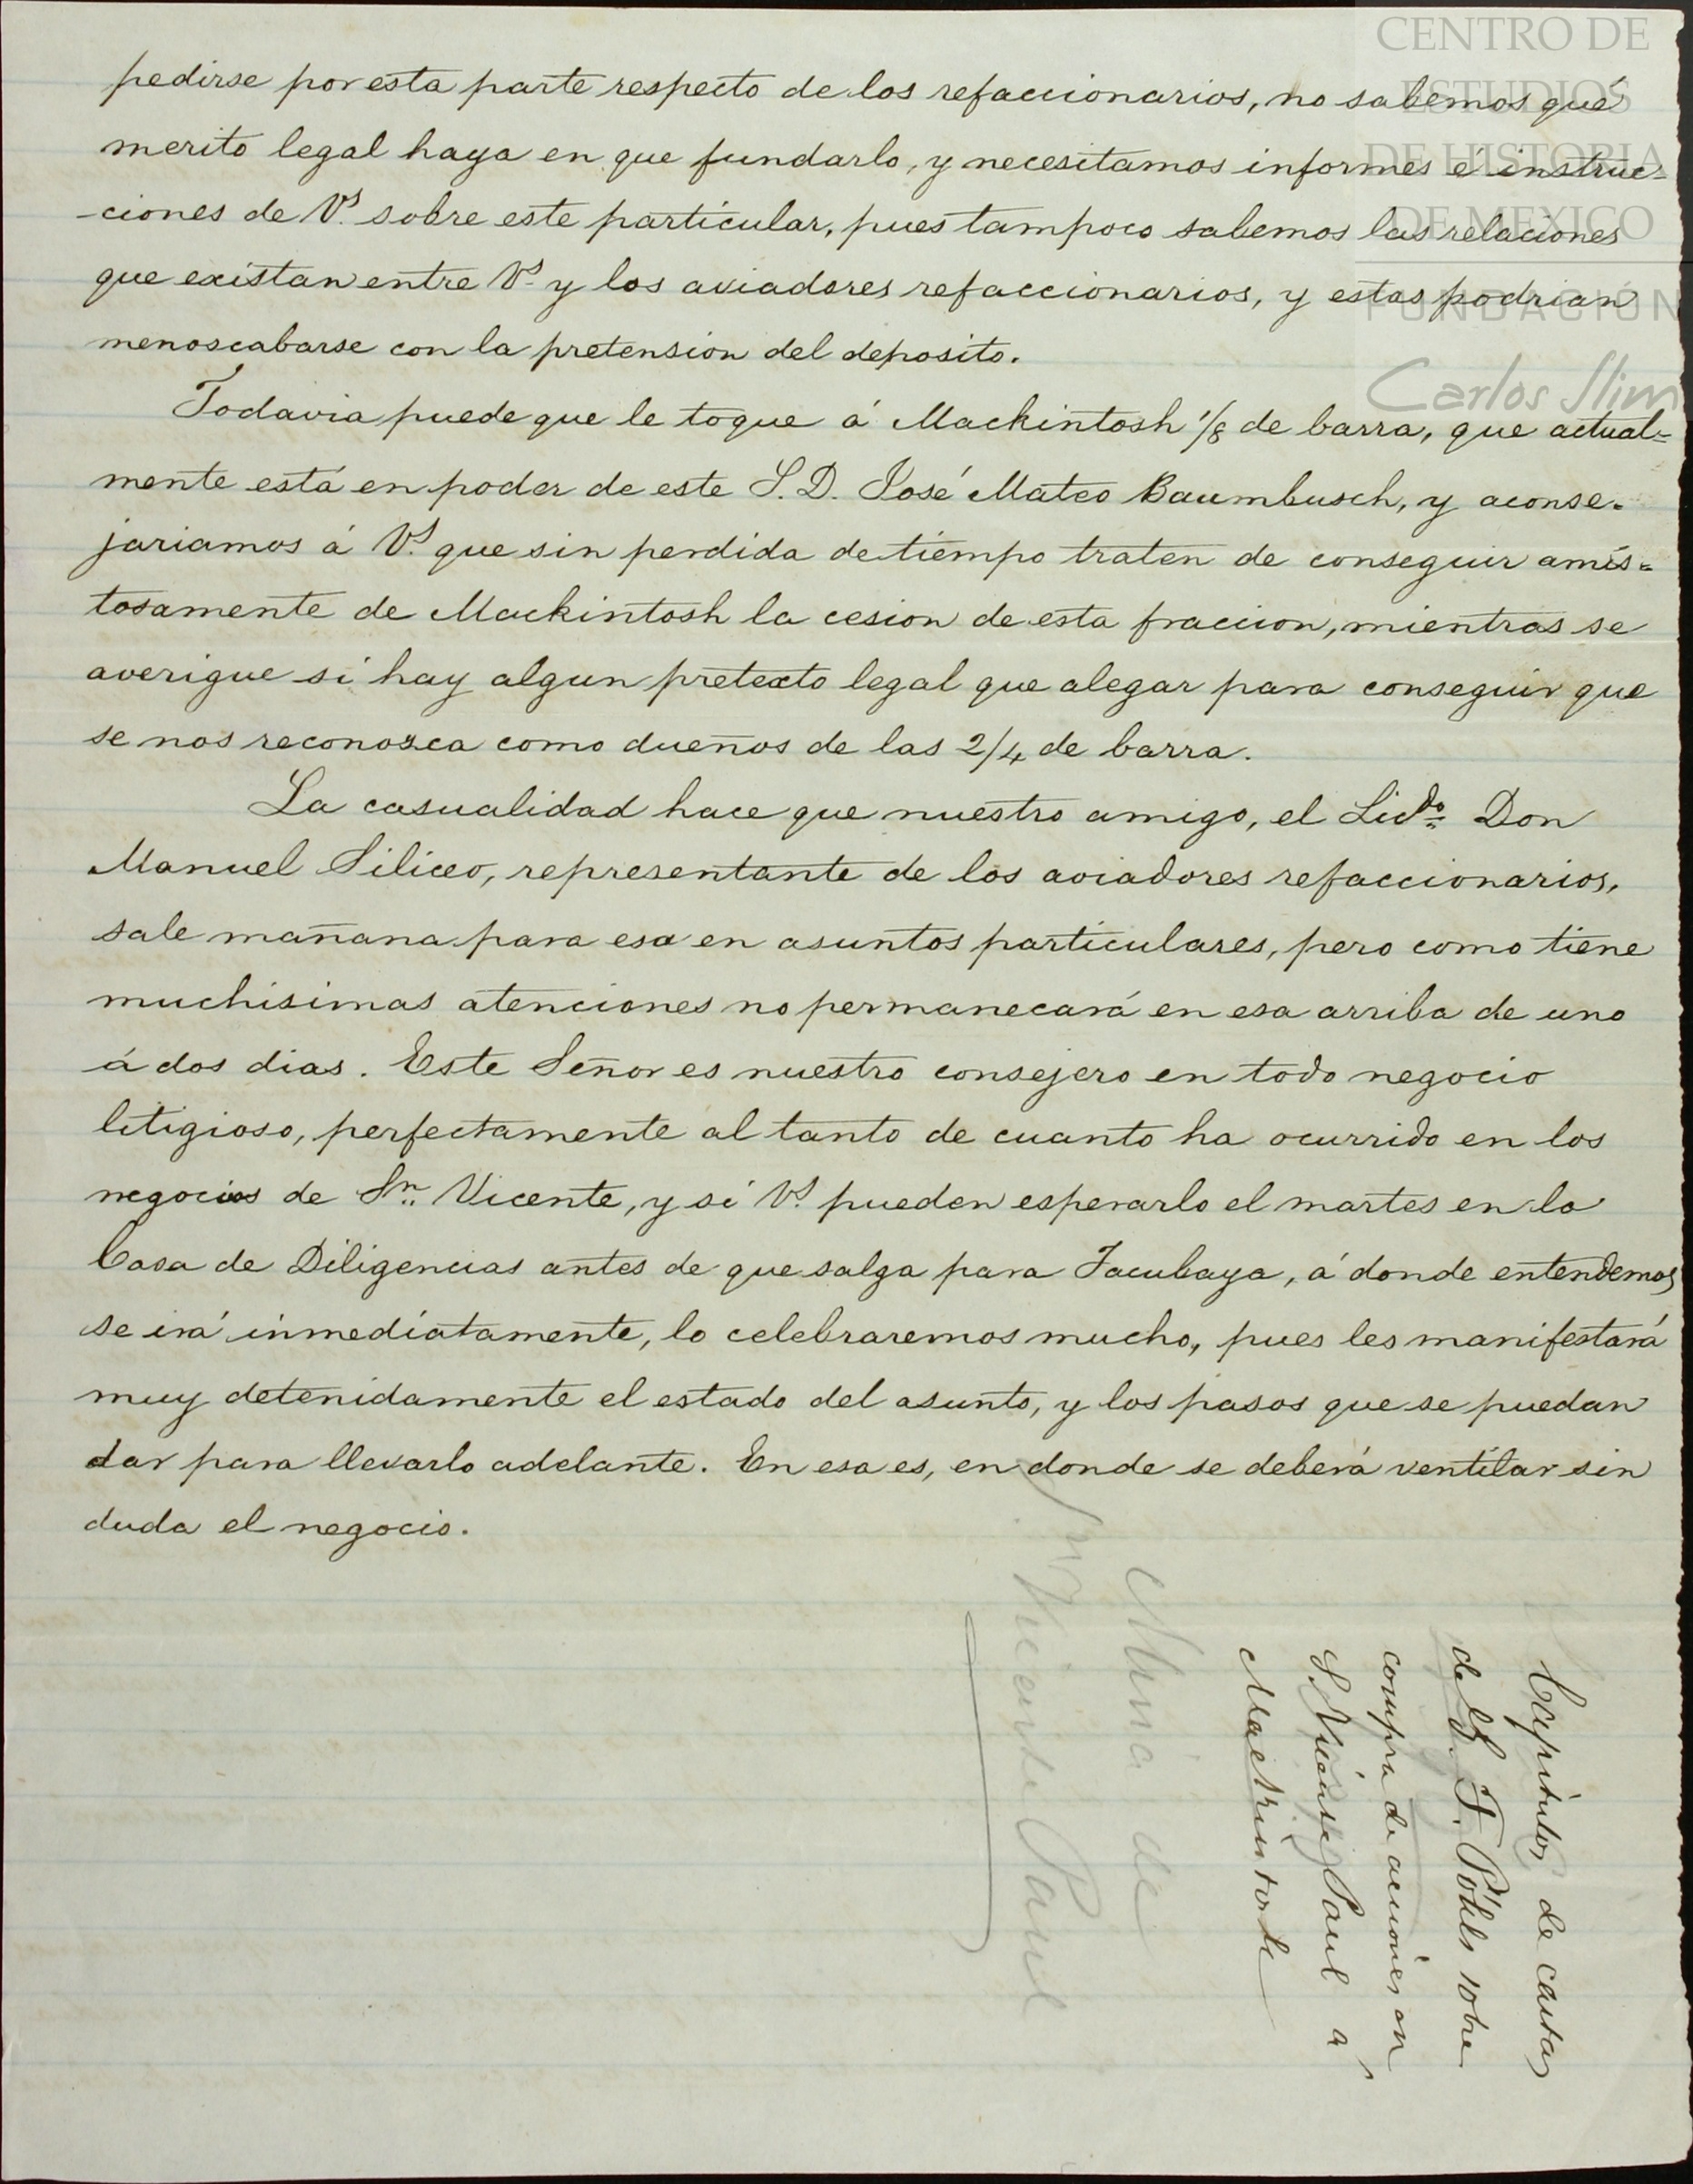 pedirse por esta parte respecto de los refaccionarios, no sabemos qué
merito legal haya en que fundarlo, y necesitamos informes é instruc-
-ciones de Vs. sobre este particular, pues tampoco sabemos las relaciones
que existan entre Vs. y los aviadores refaccionarios, y estas podrian
menoscabarse con la pretension del deposito.
Todavia puede que le toque á Mackintosh 1/8 de barra, que actual=
mente está en poder de este S. D. José Mateo Baumbusch, y aconse-
jariamos á Vs. que sin perdida de tiempo traten de conseguir amis=
tosamente de Mackintosh la cesion de esta fraccion, mientras se
averigue si hay algun pretexto legal que alegar para conseguir que
se nos reconosca como dueños de las 2/4 de barra.
La casualidad hace que nuestro amigo, el Licdo. Don
Manuel Siliceo, representante de los aviadores refaccionarios,
sale mañana para esa en asuntos particulares, pero como tiene
muchisimas atenciones no permanecará en esa arriba de uno
á dos dias. Este Señor es nuestro consejero en todo negocio
litigioso, perfectamente al tanto de cuanto ha ocurrido en los
negocios de Sn. Vicente, y si Vs. pueden esperarlo el martes en la
Casa de Diligencias antes de que salga para Tacubaya, á donde entendemos
se irá inmediatamente, lo celebraremos mucho, pues les manifestará
muy detenidamente el estado del asunto, y los pasos que se puedan
dar para llevarlo adelante. En esa es, en donde se deberá ventilar sin
duda el negocio.
Capitulos de cartas
del S. F. Pöhls sobre
compra de acciones en
S. Vicente Paul á
Mackintosh
Mina de
Sn Vicente Paul
CENTRO DE
ESTUDIOS
DE HISTORIA
DE MEXICO
FUNDACIÓN
Carlos Slim